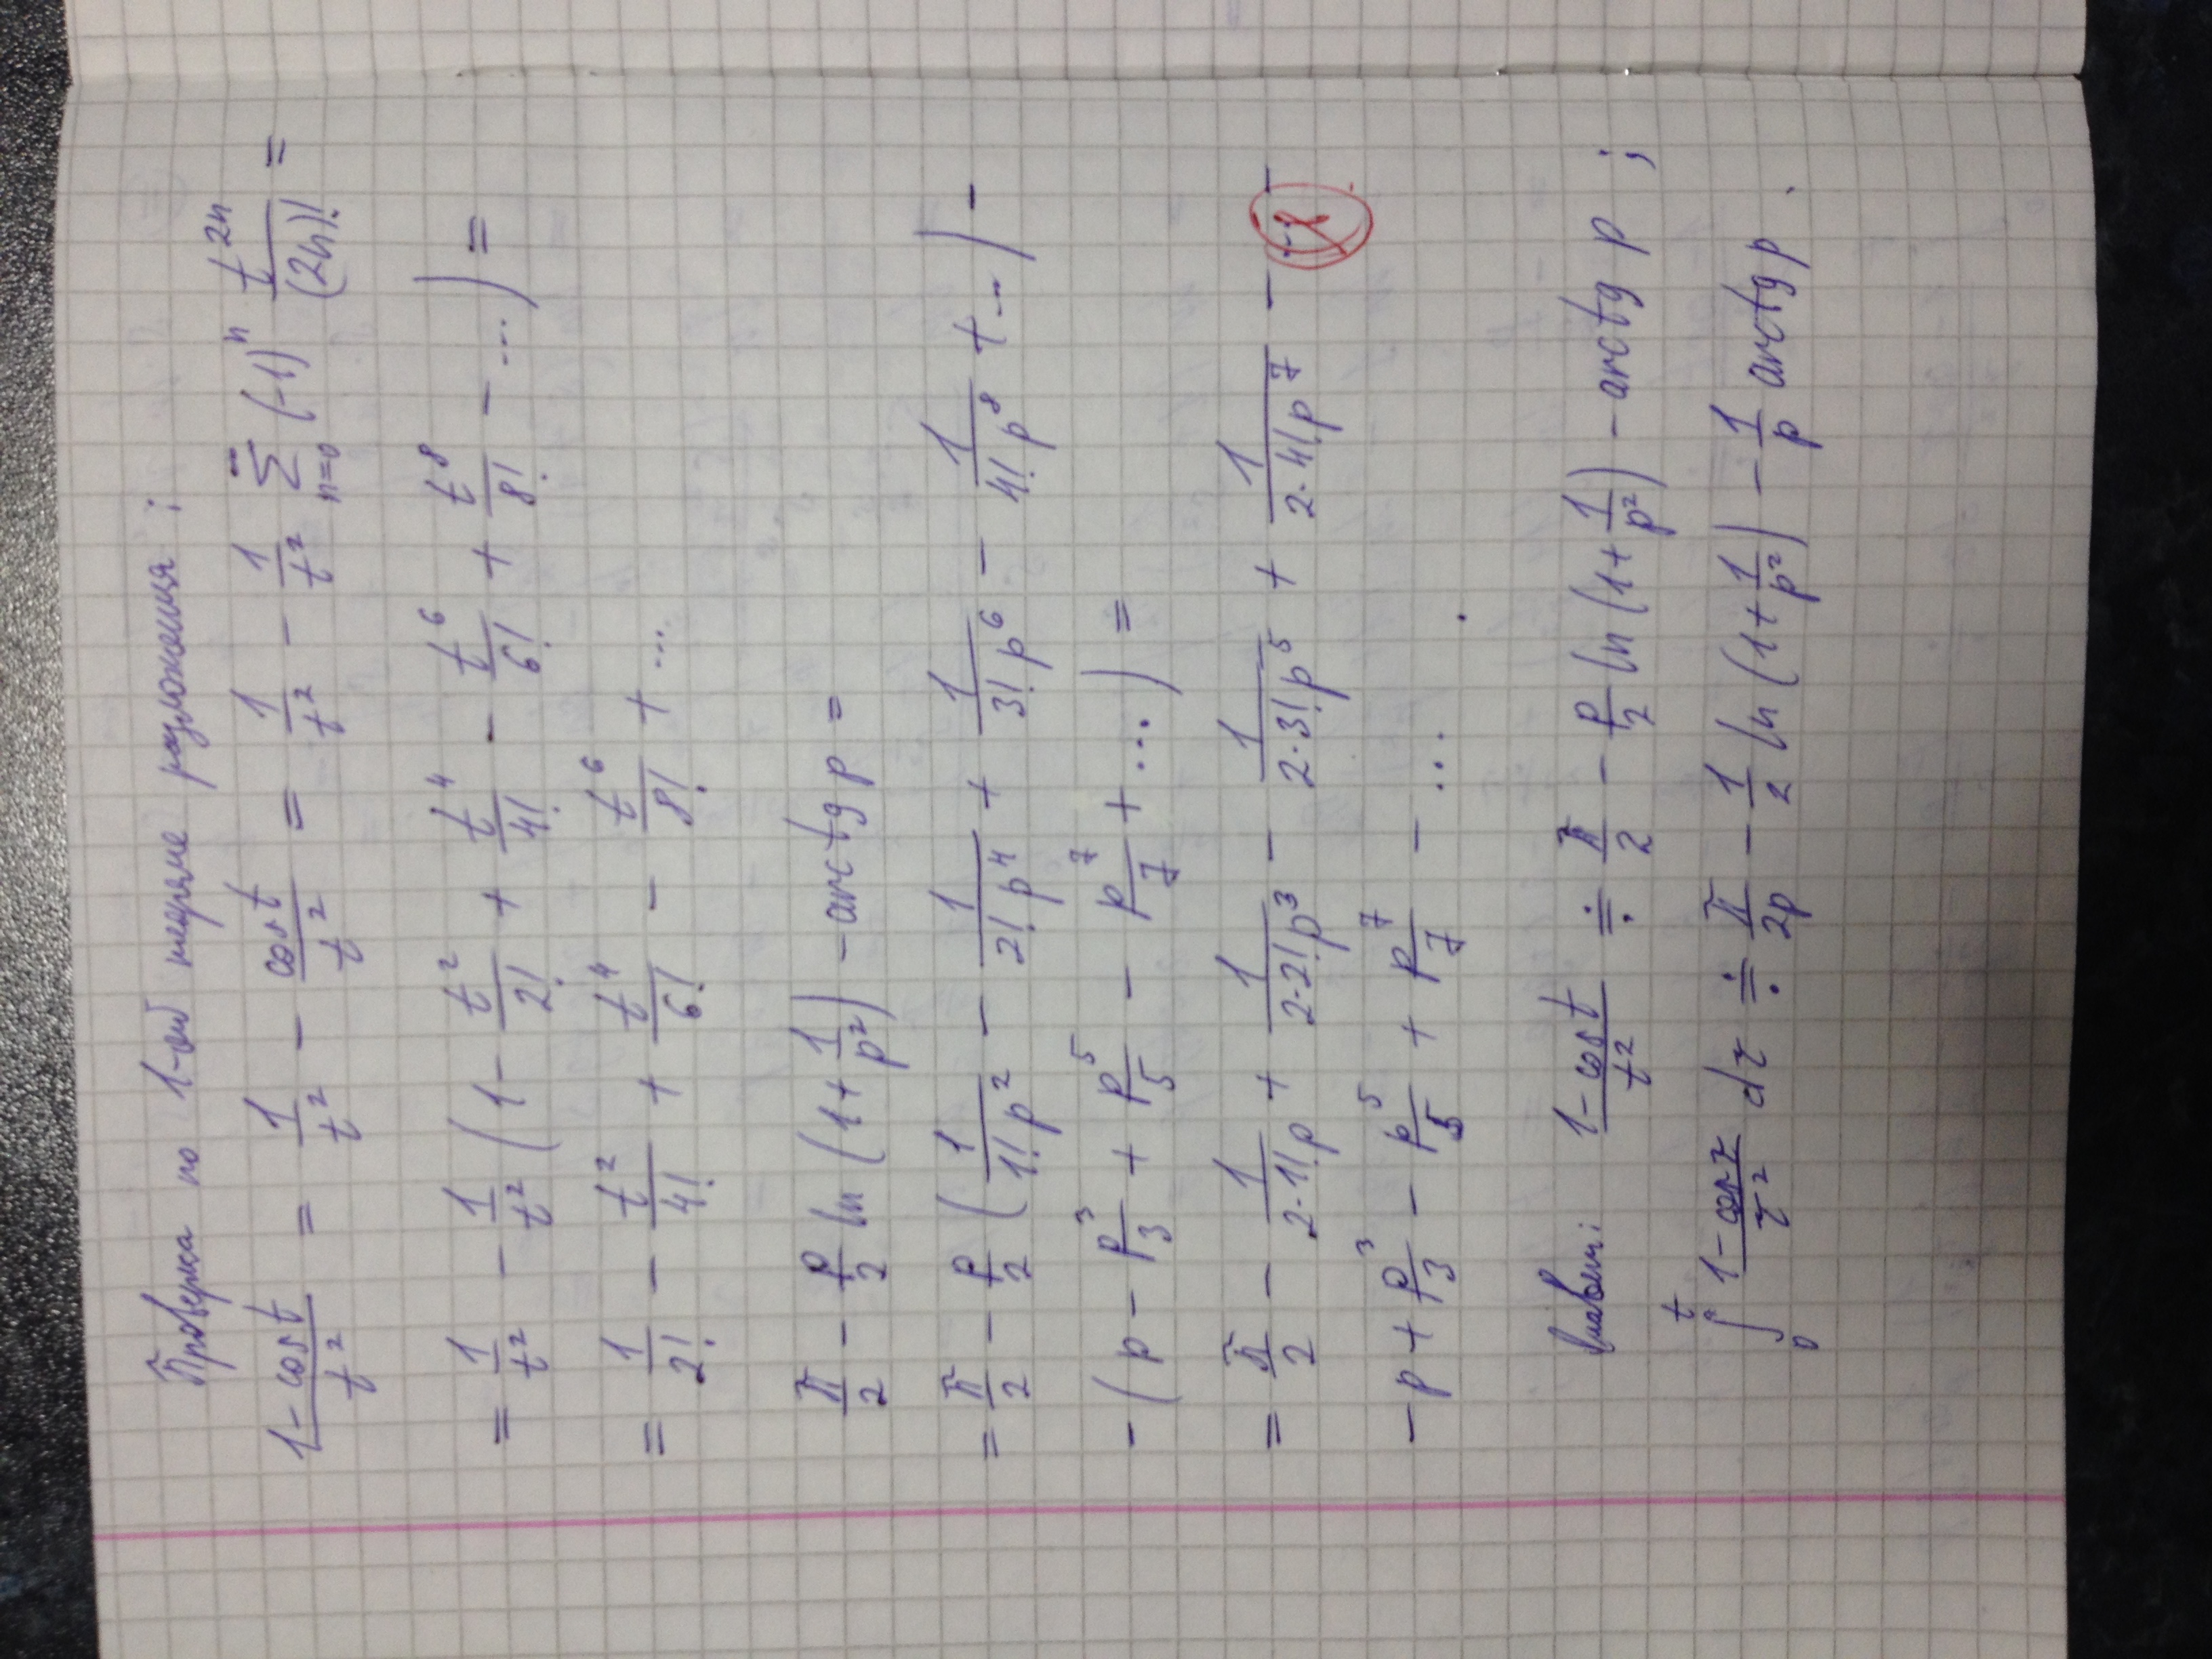 Проверка по 1-ой теореме разложения:
(1-cos t)/t² = 1/t² - cos t/t² = 1/t² - 1/t² ∑_{n=0}^{∞} (-1)ⁿ t²ⁿ/(2n)! =
= 1/t² - 1/t² (1 - t²/2! + t⁴/4! - t⁶/6! + t⁸/8! - ...) =
= 1/2! - t²/4! + t⁴/6! - t⁶/8! + ...
π/2 - p/2 ln(1 + 1/p²) - arctg p =
= π/2 - p/2 (1/(1!p²) - 1/(2!p⁴) + 1/(3!p⁶) - 1/(4!p⁸) + ...) -
- (p - p³/3 + p⁵/5 - p⁷/7 + ...) =
= π/2 - 1/(2·1!p) + 1/(2·2!p³) - 1/(2·3!p⁵) + 1/(2·4!p⁷) - ... -
- p + p³/3 - p⁵/5 + p⁷/7 - ... .
(1-cos t)/t² ≑ π/2 - p/2 ln(1 + 1/p²) - arctg p ;
∫₀ᵗ (1-cos τ)/τ² dτ ≑ π/2p - 1/2 ln(1 + 1/p²) - 1/p arctg p .